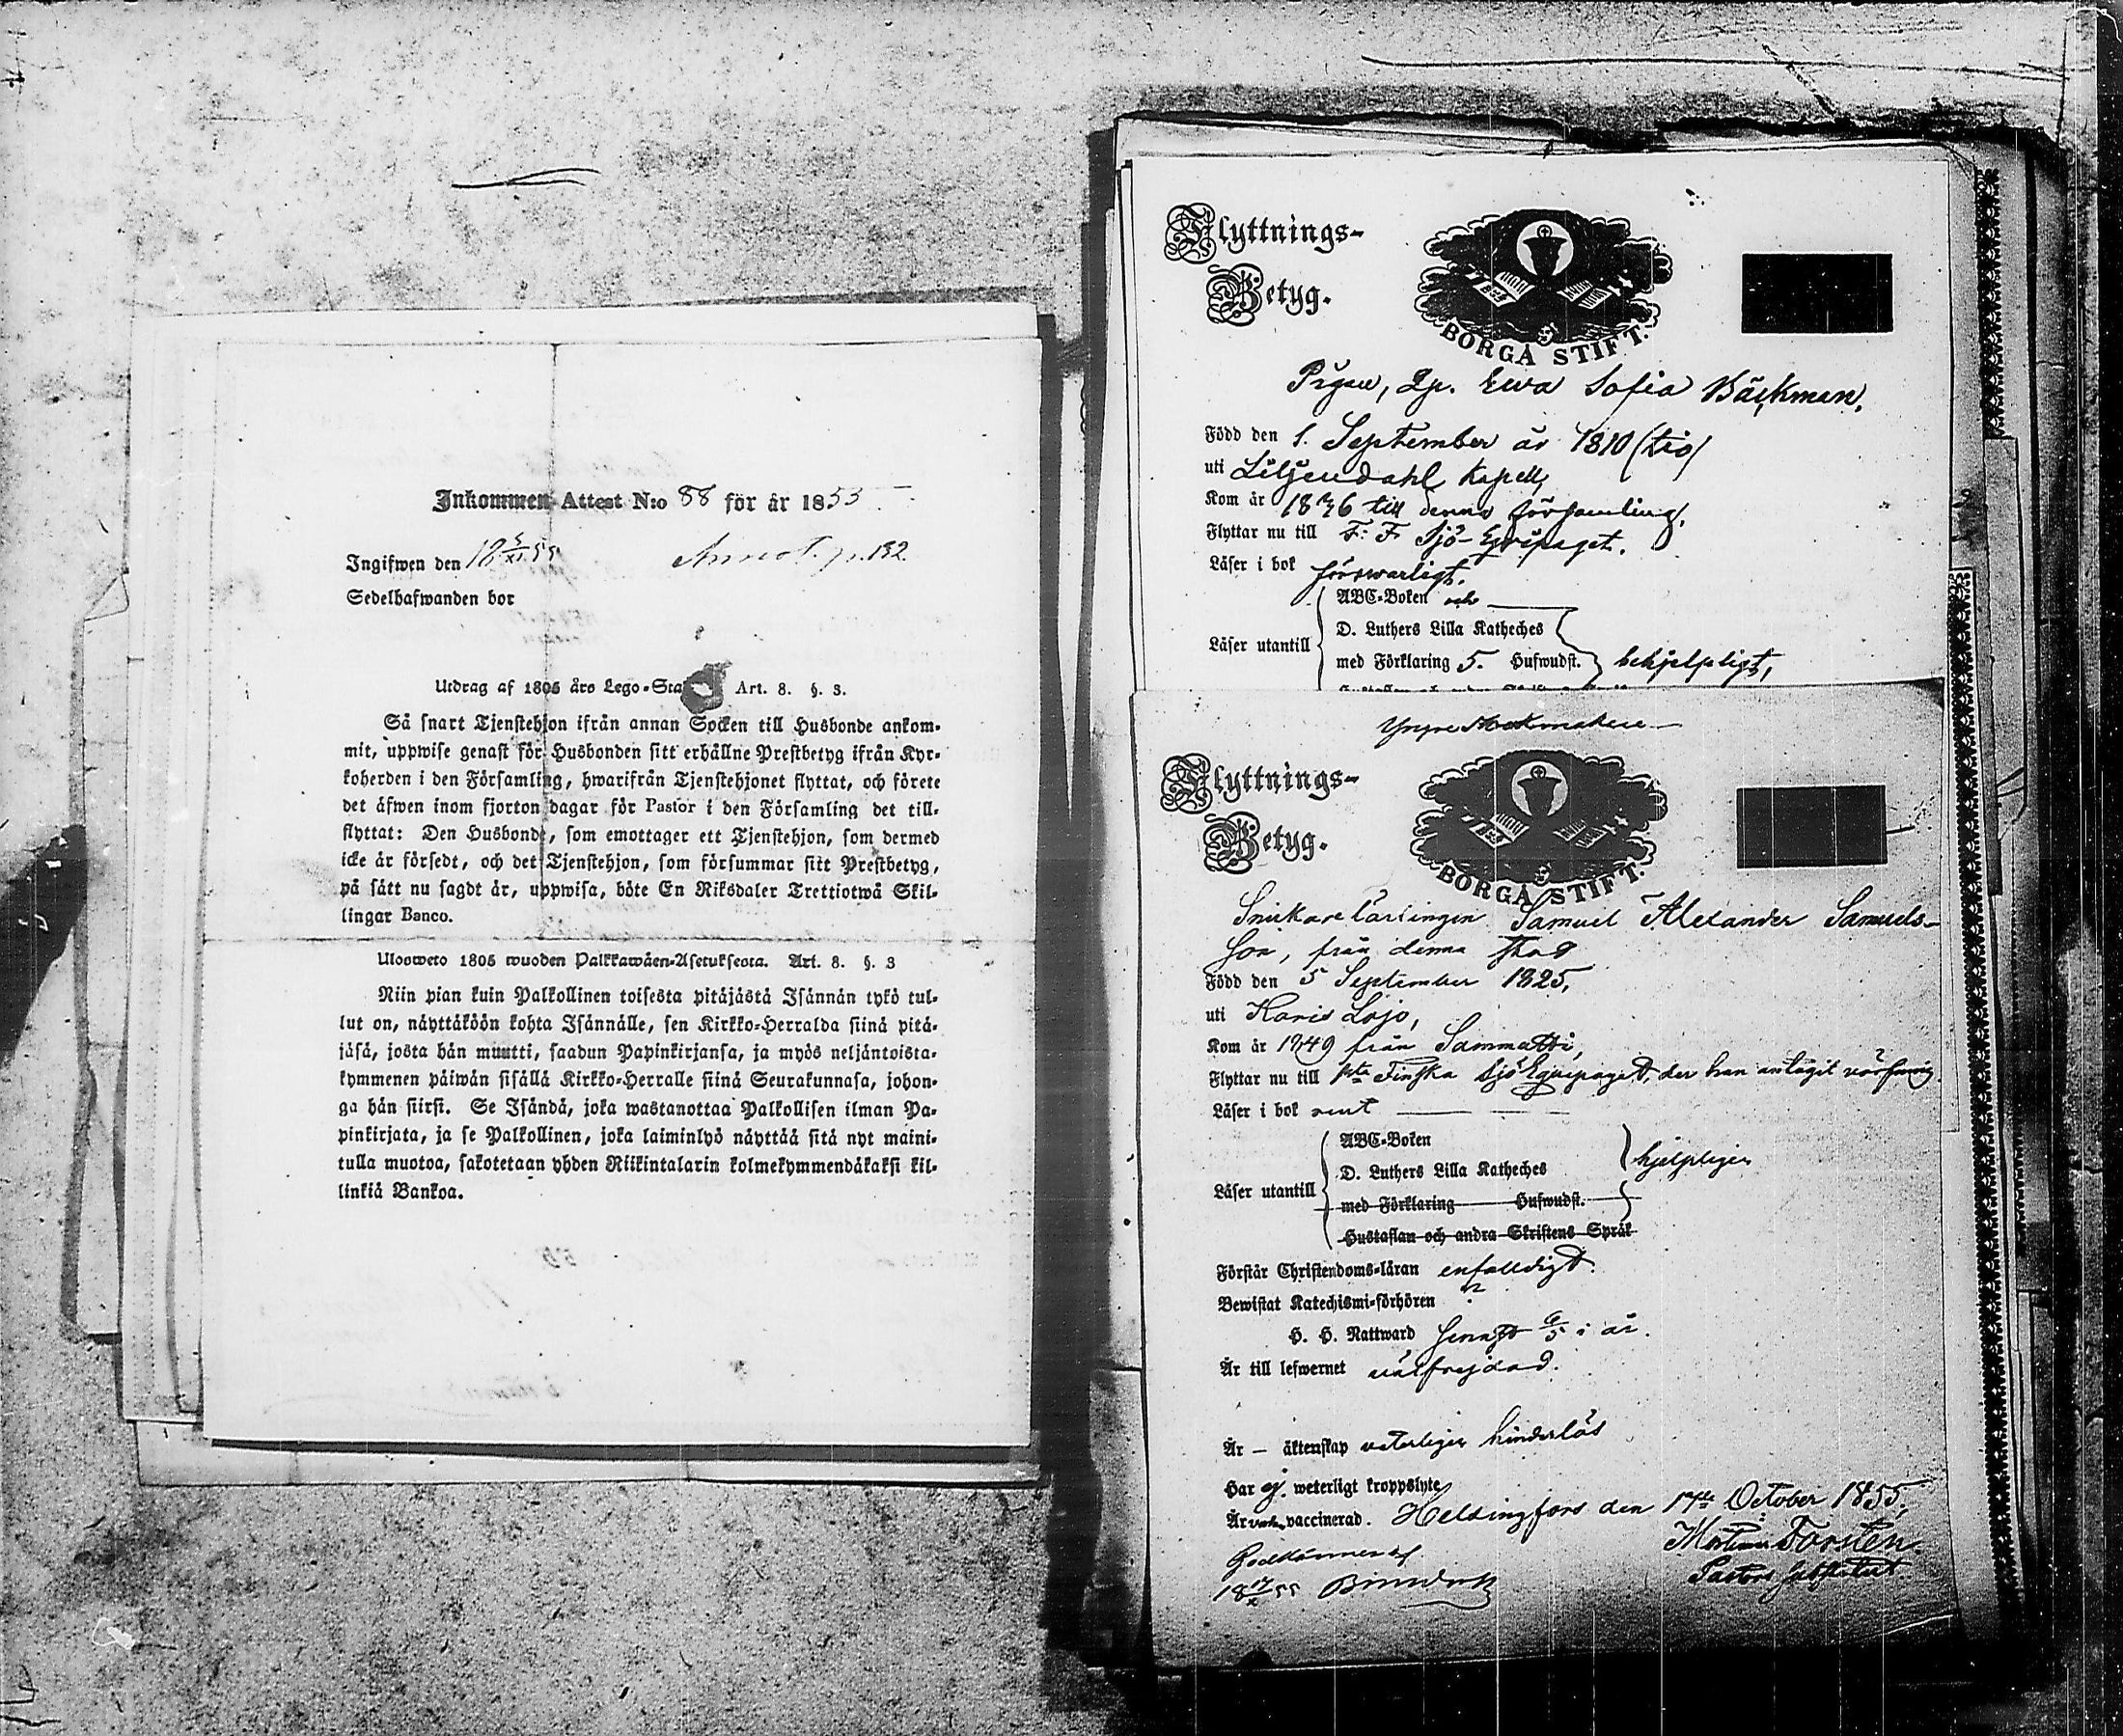 Inkommen Attest N:o 88 för år 1855
Ingifwen den 18 5/XI 55 Annot. p. 132
Sedelhafwanden bor
Utdrag af 1805 års Lego-Sta Art. 8. §. 3.
Så snart Tjenstehjon ifrån annan Socken till Husbonde ankom-
mit, uppwise genast för Husbonden sitt erhållne Prestbetyg ifrån Kyr-
koherden i den Församling, hwarifrån Tjenstehjonet flyttat, och förete
det äfwen inom fjorton dagar för Pastor i den Församling det till-
flyttat: Den Husbonde, som emottager ett Tjenstehjon, som dermed
icke är försedt, och det Tjenstehjon, som försummar sitt Prestbetyg,
på sätt nu sagdt är, uppwisa, böte En Riksdaler Trettiotwå Skil-
lingar Banco.
Ulosweto 1805 wuoden Palkkawäen-Asetuksesta. Art. 8. §. 3
Niin pian kuin Palkollinen toisesta pitäjästä Isännän tykö tul-
lut on, näyttäköön kohta Isännälle, sen Kirkko-Herralda siinä pitä-
jäsä, josta hän muutti, saadun Papinkirjansa, ja myös neljäntoista-
kymmenen päiwän sisällä Kirkko-Herralle siinä Seurakunnasa, johon-
ga hän siirsi. Se Isändä, joka wastanottaa Palkollisen ilman Pa-
pinkirjata, ja se Palkollinen, joka laiminlyö näyttää sitä nyt maini-
tulla muotoa, sakotetaan yhden Riikintalarin kolmekymmendäkaksi kil-
linkiä Bankoa.
Flyttnings-
Betyg.
BORGÅ STIFT.
Pigan, Ewa Sofia Bäckman,
Född den 1. September år 1810 (tio)
uti Liljendahl Kapell,
Kom år 1836 till denna församling,
Flyttar nu till F. F. Sjö-Equipaget.
Läser i bok förswarligt.
ABC-Boken och
D. Luthers Lilla Katheches
Läser utantill
med Förklaring 5. Hufwudst. behjelpligt,
Yngre
Flyttnings-
Betyg.
BORGÅ STIFT.
Snickare lärlingen Samuel Alexander Samuels-
son, från denna stad
Född den 5 September 1825,
uti Karis Lojo,
Kom år 1849 från Sammatti,
Flyttar nu till 1sta Finska Sjö Equipaget, der han antagit värfning.
Läser i bok rent
ABC-Boken
D. Luthers Lilla Katheches hjelpligen
Läser utantill
med Förklaring Hufwudst.
Hustaflan och andra Skriftens Språk
Förstår Christendoms-läran enfaldigt.
Bewistat Katechismi-förhören
H. H. Nattward senast 6/5 i år.
Är till lefwernet välfrejdad.
Är – äktenskap veterligen hinderlös
Har ej weterligt kroppslyte
Är vaccinerad. Helsingfors den 17de October 1855.
Forstén.
Pastors Substitut
Godkännes af
18 17/X 55